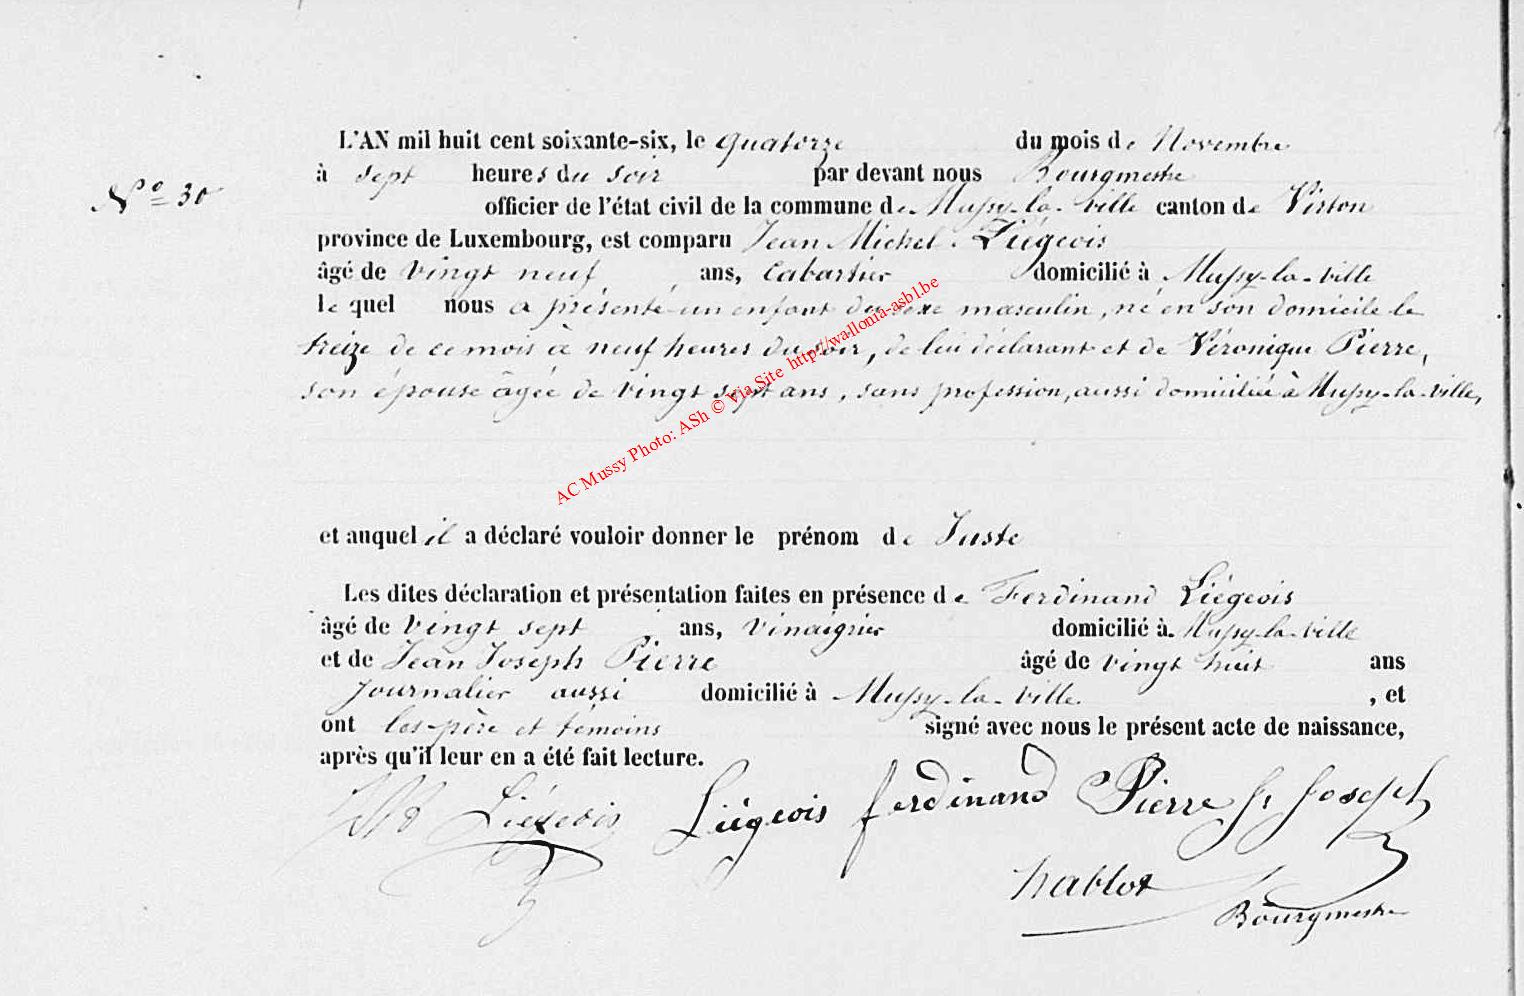 L'AN mil huit cent soixante-six, le quatorze du mois de Novembre
à sept heures du soir par devant nous Bourgmestre
N° 30
officier de l'état civil de la commune de Mussy-la-ville canton de Virton
province de Luxembourg, est comparu Jean Michel Liégeois
âgé de vingt neuf ans, Cabartier domicilié à Mussy-la-ville
lequel nous a présenté un enfant du sexe masculin, né en son domicile le
treize de ce mois à neuf heures du soir, de lui déclarant et de Véronique Pierre,
son épouse âgée de vingt sept ans, sans profession, aussi domiciliée à Mussy-la-ville,
AC Mussy Photo: ASh © Via Site http://wallonia-asbl.be
et auquel il a déclaré vouloir donner le prénom de Juste
Les dites déclaration et présentation faites en présence de Ferdinand Liégeois
âgé de vingt sept ans, vinaigrier domicilié à Mussy-la-ville
et de Jean Joseph Pierre âgé de vingt huit ans
journalier aussi domicilié à Mussy-la-ville , et
ont les père et témoins signé avec nous le présent acte de naissance,
après qu'il leur en a été fait lecture.
Liégeois Liégeois ferdinand Pierre J Joseph
hablot
Bourgmestre